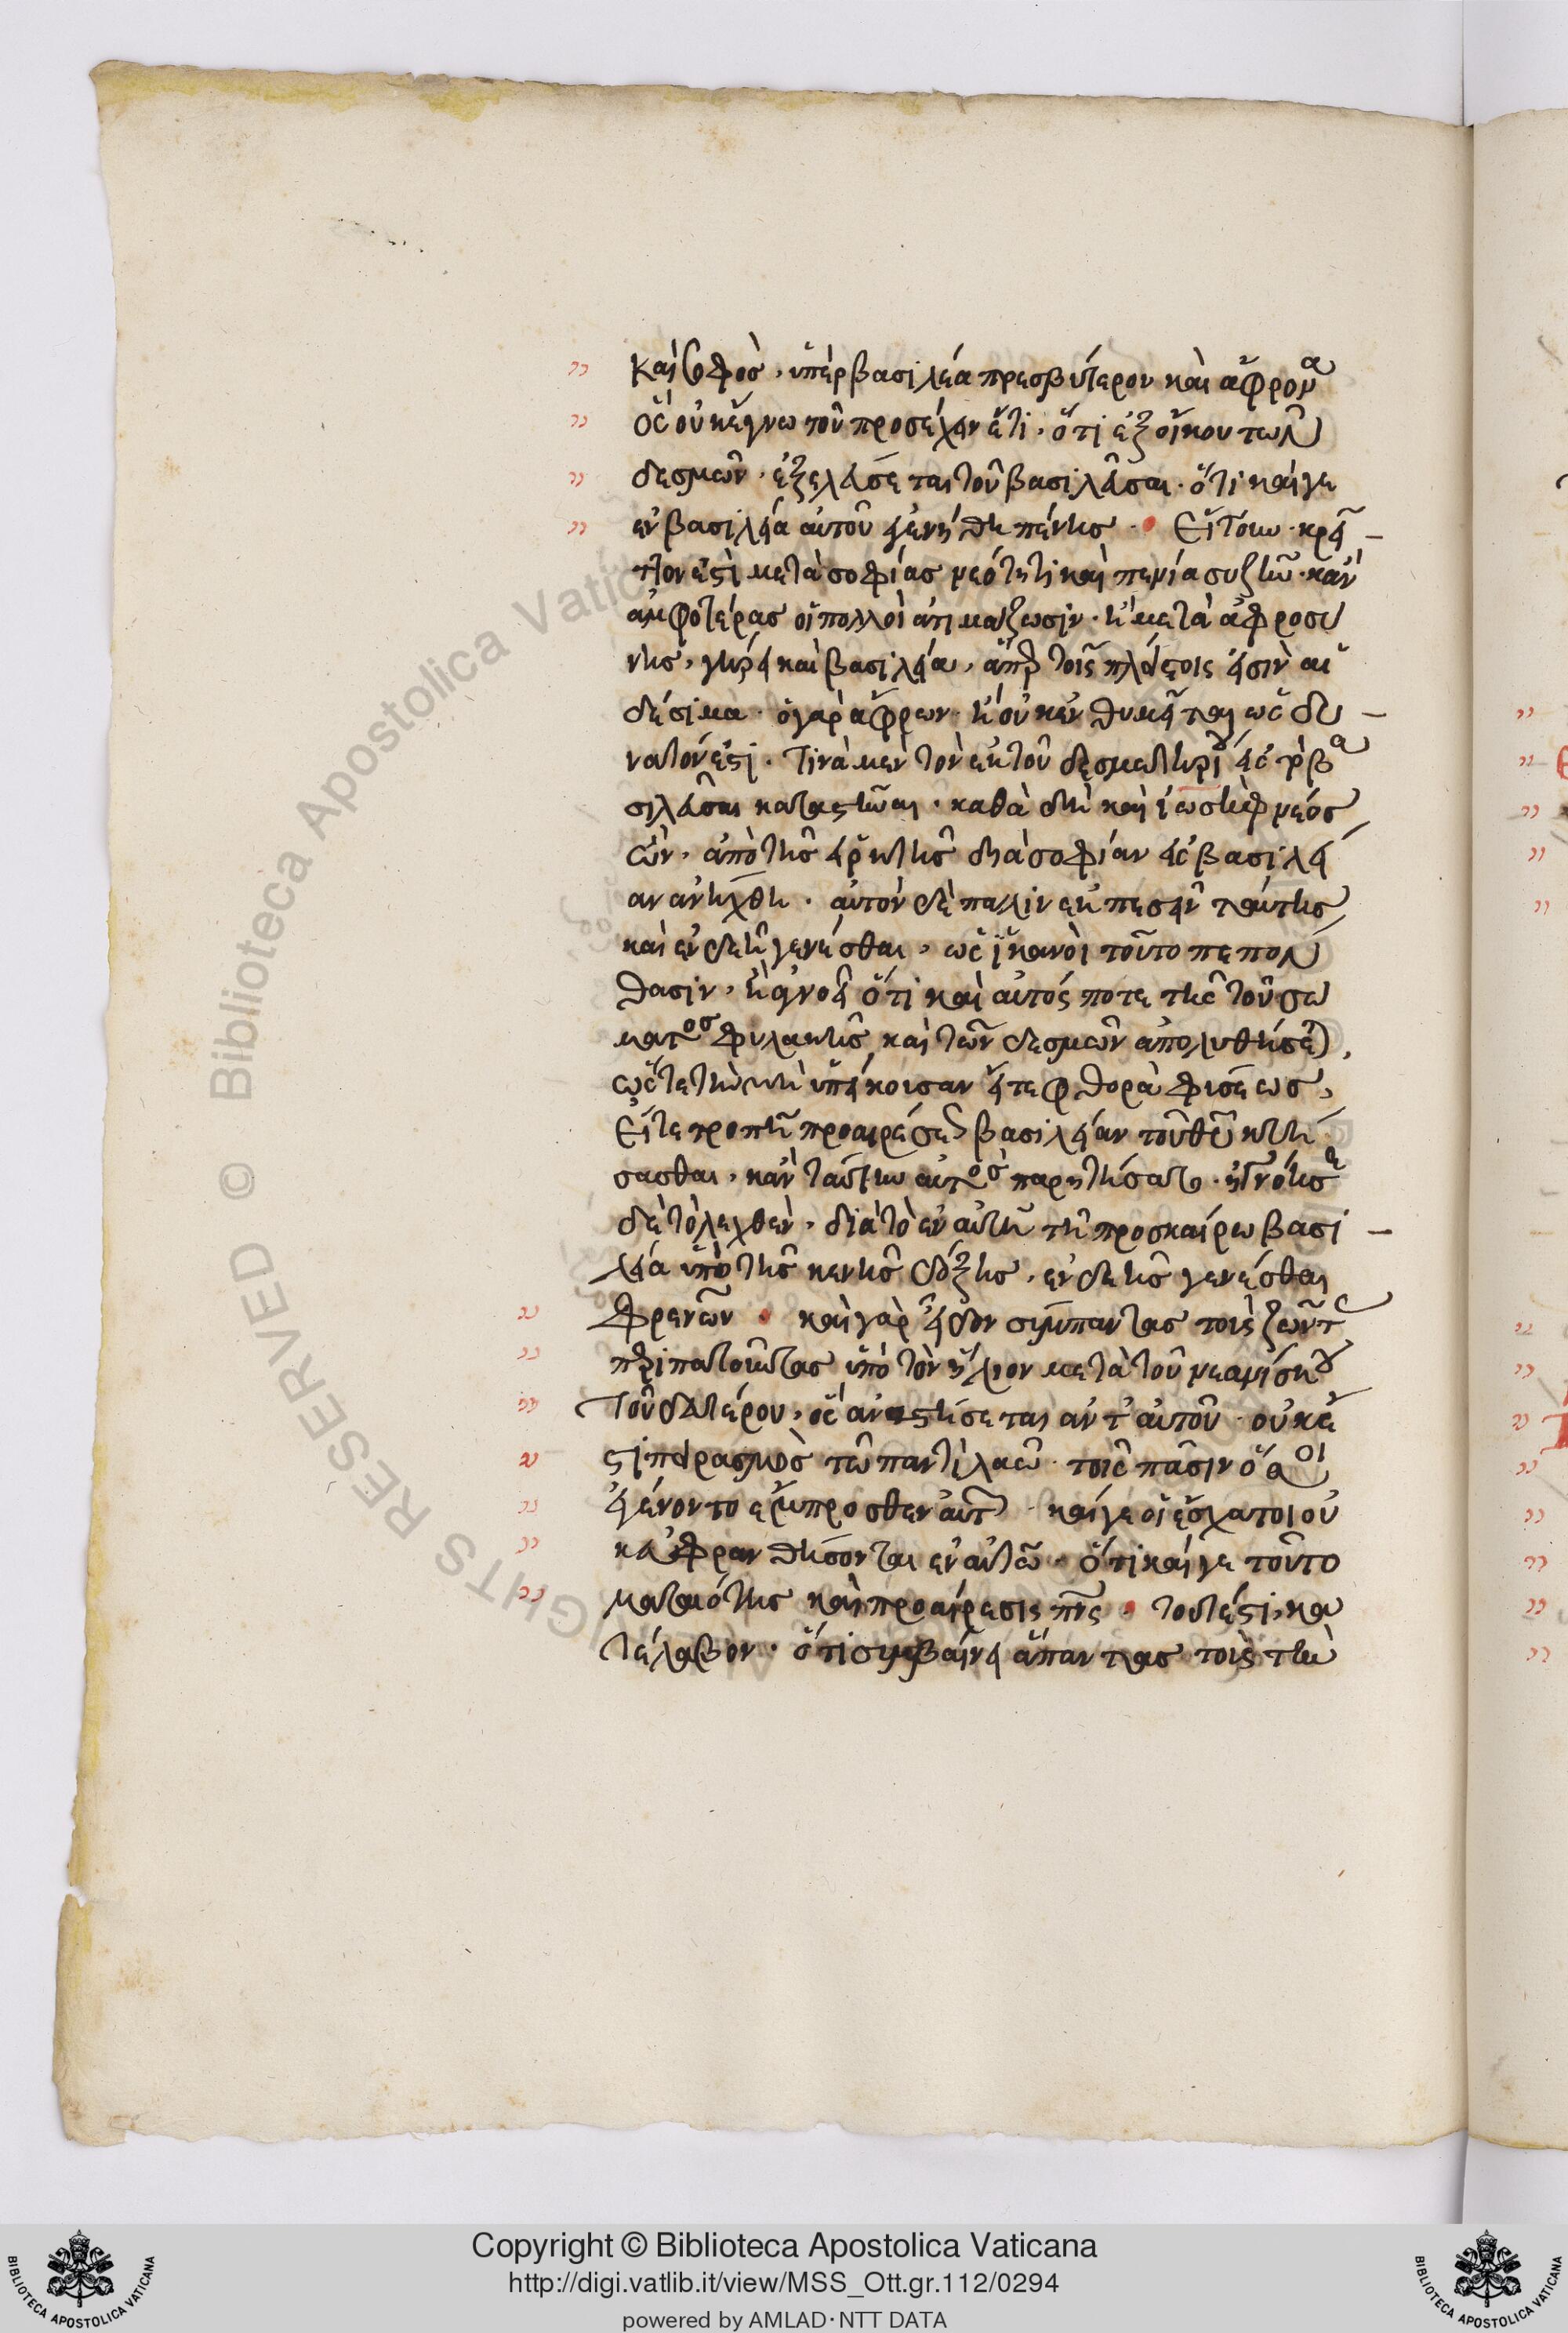 καὶ σοφὸς, ὑπὲρ βασιλέα πρεσβύτερον καὶ ἄφρονα
ὃς οὐκ ἔγνω τοῦ προσέχειν ἔτι, ὅτι ἐξ οἴκου τῶν
δεσμῶν, ἐξελεύσεται τοῦ βασιλεῦσαι. ὅτι καίγε
ἐν βασιλεία αὐτοῦ ἐγενήθη πένης. Εἴτουν κρεῖ
ττον ἐστὶ μετὰ σοφίας νεότητι καὶ πενία συζῆν. κἂν
ἀμφοτέρας οἱ πολλοὶ ἀτιμάζωσιν. ἢ μετὰ ἀφροσύ
νης, γήρει καὶ βασιλεία, ἅπερ τοῖς πλείστοις εἰσὶν αἰ
δέσιμα. ὁ γὰρ ἄφρων ἢ οὐκ ἐνθυμεῖται ὡς δυ
νατόν ἐστι. τινὰ μὲν τὸν ἐκ τοῦ δεσμωτηρίου εἰς τὸ βα
σιλεῦσαι καταστῆναι. καθὰ δὴ καὶ ἰωσὴφ νέος
ὢν, ἀπὸ τῆς εἱρκτῆς διὰ σοφίαν εἰς βασιλεί
αν ἀνήχθη. αὐτὸν δὲ πάλιν ἐκπεσεῖν ταύτης
καὶ ἐνδεῆ γενέσθαι, ὡς ἱκανοὶ τοῦτο πεπόν
θασιν, ἢ ἀγνοεῖ ὅτι καὶ αὐτός ποτε τῆς τοῦ σώ
ματος φυλακῆς καὶ τῶν δεσμῶν ἀπολυθήσεται,
ὥστε τὴν μὴ ὑπείκουσαν εἴτε φθορὰ φύσεως,
εἴτε τροπῆ προαιρέσεως βασιλείαν τοῦ θεοῦ κτή
σασθαι, κἂν ταύτην αὐτὸς παρητήσατο. ἠγνόησε
δὲ τὸ λεχθὲν, διὰ τὸ ἐν αὐτῆ τῆ προσκαίρω βασι
λεία ὑπὸ τῆς κενῆς δόξης, ἐνδεὴς γενέσθαι
φρενῶν. καὶ γὰρ εἶδον σύμπαντας τοὺς ζῶντας
περιπατοῦντας ὑπὸ τὸν ἥλιον μετὰ τοῦ νεανίσκου
τοῦ δευτέρου, ὃς ἀναστήσεται ἀντ' αὐτοῦ. οὐκ ἔ
στι περασμὸς τῶ παντὶ λαῶ. τοῖς πᾶσιν ὅσοι
ἐγένοντο ἔμπροσθεν αὐτῶν καίγε οἱ ἔσχατοι οὐ
κ εὐφρανθήσονται ἐν αὐτῶ. ὅτι καίγε τοῦτο
ματαιότης καὶ προαίρεσις πνς. τουτέστι, κα
τέλαβον. ὅτι συμβαίνει ἅπαντας τοὺς τὴν
Copyright © Biblioteca Apostolica Vaticana
http://digi.vatlib.it/view/MSS_Ott.gr.112/0294
powered by AMLAD·NTT DATA